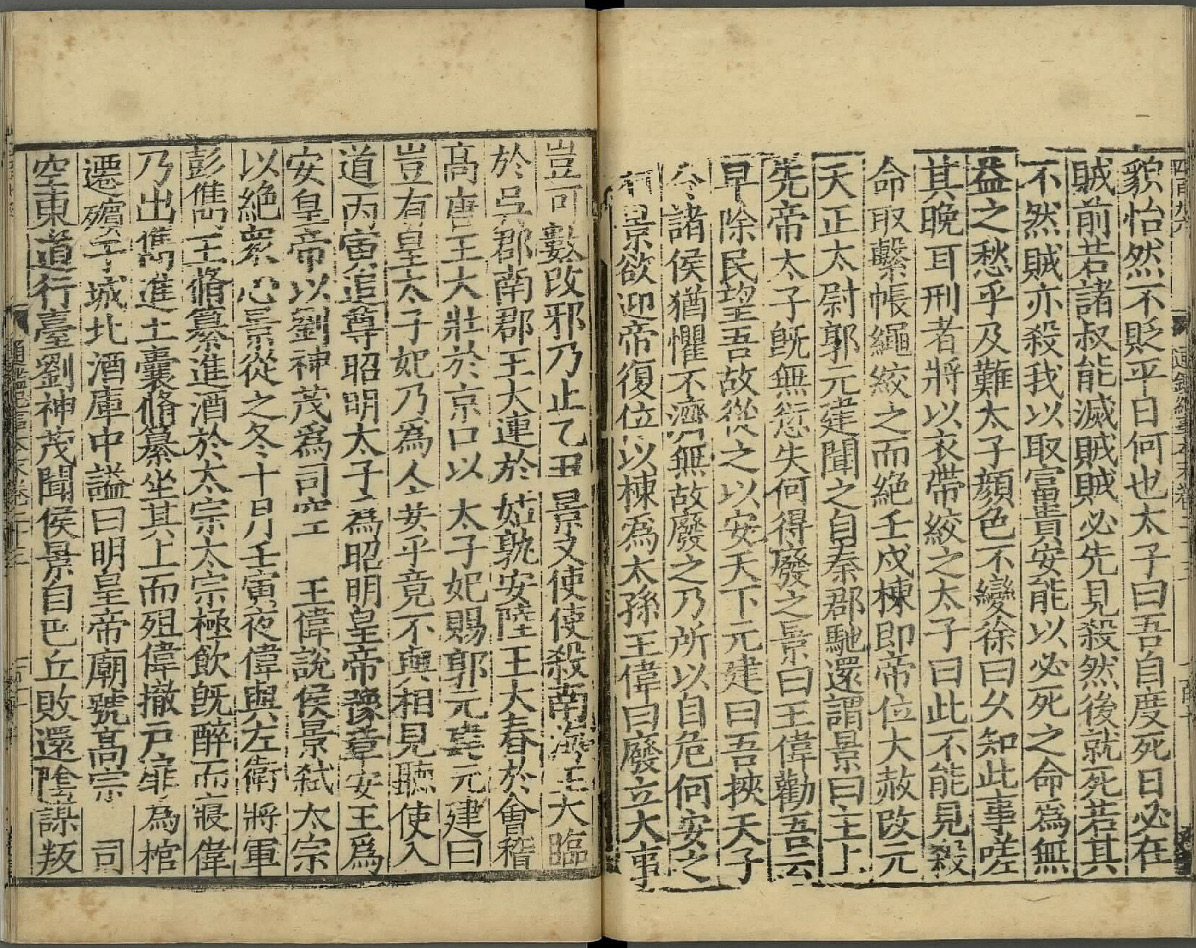 貌怡然不貶平日何也太子曰吾自度死日必在
賊前若諸叔能滅賊賊必先見殺然後就死若其
不然賊亦殺我以取富貴安能以必死之命爲無
益之愁乎及難太子顏色不變徐曰久知此事嗟
其晚耳刑者將以衣帶絞之太子曰此不能見殺
命取繫帳繩絞之而絕壬戌棟即帝位大赦改元
天正太尉郭元建聞之自秦郡馳還謂景曰主上
先帝太子旣無愆失何得廢之景曰王偉勸吾云
早除民望吾故從之以安天下元建曰吾挾天子
令諸侯猶懼不濟無故廢之乃所以自危何安之
有景欲迎帝復位以棟爲太孫王偉曰廢立大事
豈可數改邪乃止乙丑景又使使殺南海王大臨
於吳郡南郡王大連於姑孰安陸王大春於會稽
髙唐王大壯於京口以太子妃賜郭元建元建曰
豈有皇太子妃乃爲人妾乎竟不與相見聽使入
道丙寅追尊昭明太子爲昭明皇帝豫章安王爲
安皇帝以劉神茂爲司空 王偉說侯景弒太宗
以絕衆心景從之冬十月壬寅夜偉與左衛將軍
彭儁王脩纂進酒於太宗太宗極飲旣醉而寢偉
乃出儁進土囊脩纂坐其上而殂偉撤戸扉爲棺
遷殯于城北酒庫中謚曰明皇帝廟號髙宗 司
空東道行臺劉神茂聞侯景自巴丘敗還陰謀叛